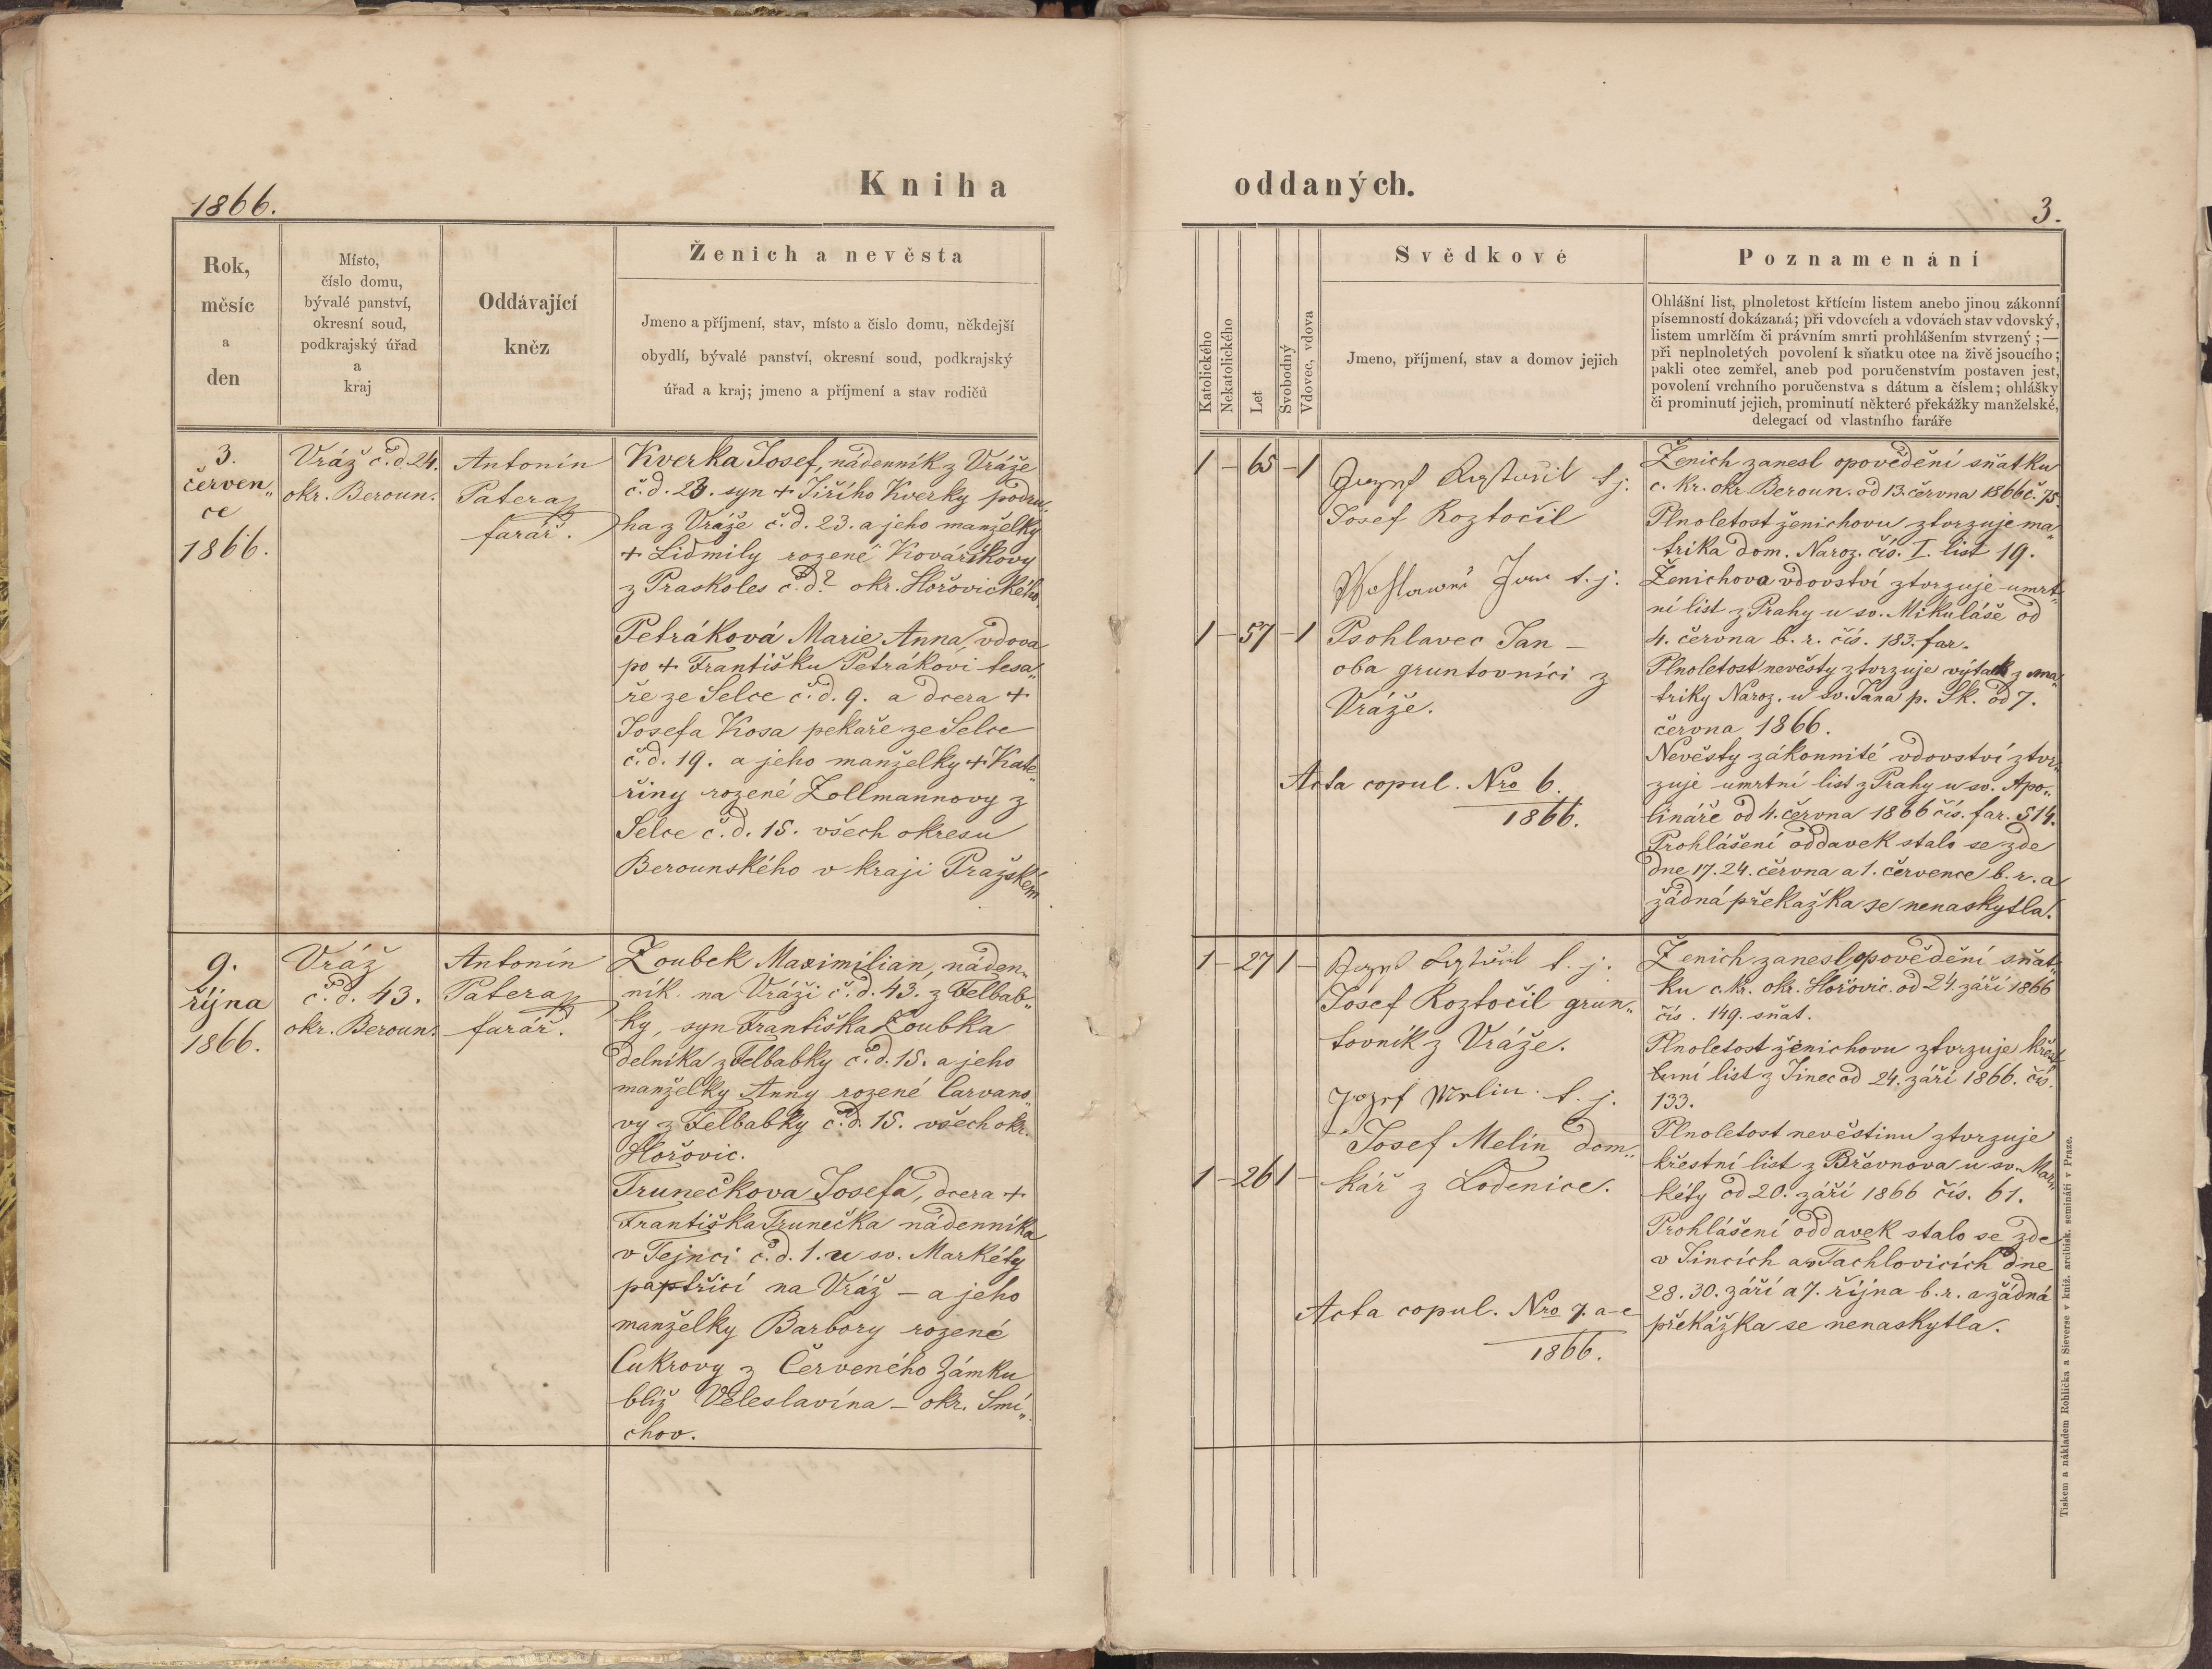 1866.
Kniha
Rok,
měsíc
a
den
Místo,
číslo domu,
bývalé panství,
okresní soud,
podkrajský úřad
a
kraj
Oddávající
kněz
Ženich a nevěsta
Jmeno a příjmení, stav, místo a číslo domu, někdejší
obydlí, bývalé panství, okresní soud, podkrajský
úřad a kraj; jmeno a příjmení a stav rodičů
3.
červen„
ce
1866.
Vráž č.d. 24.
okr. Beroun.
Antonín
Patera
farář.
Kverka Josef, nádenník z Vráže
č.d. 23. syn + Jiřího Kverky podru„
ha z Vráže č.d. 23. a jeho manželky
+ Lidmily rozené Kovaříkovy
z Praskoles č.d? okr. Hořovického.
Petráková Marie Anna, vdova
po + Františku Petrákovi tesa„
ře ze Selce č.d. 9. a dcera +
Josefa Kosa pekaře ze Selce
č.d. 19. a jeho manželky + Kate„
řiny rozené Zollmannovy z
Selce č.d. 15. všech okresu
Berounského v kraji Pražském.
9.
října
1866.
Vráž
č.d. 43.
okr. Beroun.
Antonín
Patera
farář.
Zoubek Maximilian, náden„
ník na Vráži č.d. 43. z Felbab„
ky, syn Františka Zoubka
delníka z Felbabky č.d. 15. a jeho
manželky Anny rozené Carvano„
vy z Felbabky č.d. 15. všech okr.
Hořovic.
Trunečkova Josefa, dcera +
Františka Trunečka nádenníka
v Tejnci č.d. 1. u sv. Markéty
patřící na Vráž – a jeho
manželky Barbory rozené
Cukrovy z Červeného Zámku
blíž Veleslavína – okr. Smí„
chov.
oddaných.
3.
Katolického
Nekatolického
Let
Svobodný
Vdovec, vdova
Svědkové
Jmeno, příjmení, stav a domov jejich
Poznamenání
Ohlášní list, plnoletost křtícím listem anebo jinou zákonní
písemností dokázaná; při vdovcích a vdovách stav vdovský,
listem umrlčím či právním smrti prohlášením stvrzený; —
při neplnoletých povolení k sňatku otce na živě jsoucího;
pakli otec zemřel, aneb pod poručenstvím postaven jest,
povolení vrchního poručenstva s dátum a číslem; ohlášky
či prominutí jejich, prominutí některé překážky manželské,
delegací od vlastního faráře
1 – 65 – 1
t. j.
Josef Roztočil
Jan t. j.
1 – 57 – 1
Psohlavec Jan –
oba gruntovníci z
Vráže.
Acta copul. Nro 6.
1866.
Ženich zanesl opovědění sňatku
c. kr. okr. Beroun. od 13. června 1866 č. 75.
Plnoletost ženichovu ztvrzuje ma„
trika dom. Naroz. čís. I. list 19.
Ženichova vdovství ztvrzuje umrt„
ní list z Prahy u sv. Mikuláše od
4. června b. r. čís. 183. far.
Plnoletost nevěsty ztvrzuje výtah z ma„
triky Naroz. u sv. Jana p. Sk. od 7.
června 1866.
Nevěsty zákonnité vdovství ztvr„
zuje umrtní list z Prahy u sv. Apo„
lináře od 4. června 1866 čís. far. 514.
Prohlášení oddavek stalo se zde
dne 17. 24. června a 1. července b. r. a
žádná překažka se nenaskytla.
1 – 27 1 –
t. j.
Josef Roztočil grun„
tovník z Vráže.
Jozef Melin t. j.
Josef Melín dom„
1 – 26 1 –
kář z Lodenice.
Acta copul. Nro 7. a–e
1866.
Ženich zanesl opovědění sňat„
ku c. kr. okr. Hořovic. od 24. září 1866
čís. 149. sňat.
Plnoletost ženichovu ztvrzuje křest„
ní list z Jinec od 24. září 1866. čís.
133.
Plnoletost nevěstinu ztvrzuje
křestní list z Břevnova u sv. Mar„
kéty od 20. září 1866 čís. 61.
Prohlášení oddavek stalo se zde
v Jincích a v Tachlovicích dne
28. 30. září a 7. října b. r. a žádná
překážka se nenaskytla.
Tiskem a nákladem Rohlíčka a Sieverse v kníž. arcibisk. semináři v Praze.